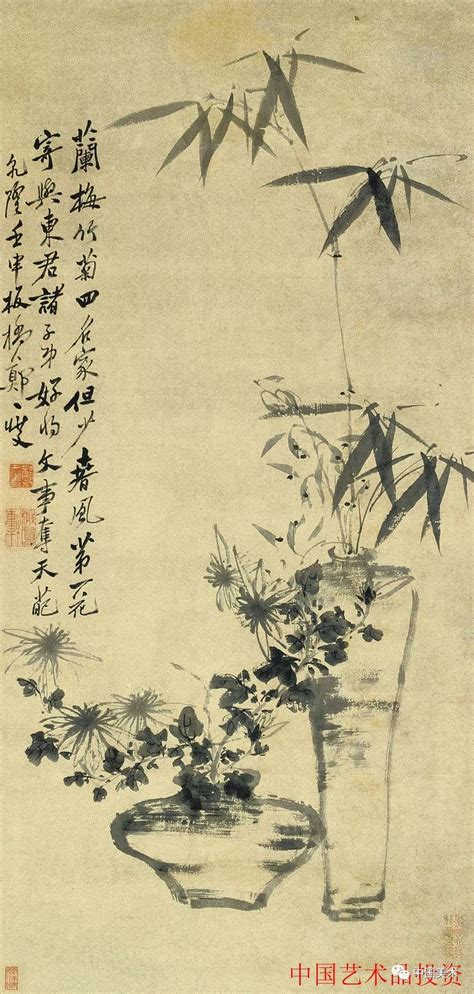 蘭梅竹菊四名家但少春風第一花
寄與東君諸子弟好將文事奪天葩
乾隆壬申板橋鄭燮
中国美术
中国艺术品投资